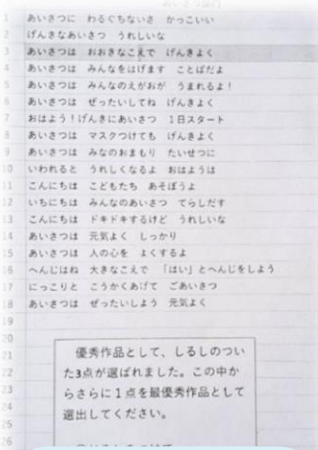 1 あいさつに わるぐちないさ かっこいい
2 げんきなあいさつ うれしいな
3 あいさつは おおきなこえで げんきよく
4 あいさつは みんなをはげます ことばだよ
5 あいさつは みんなのえがおが うまれるよ！
6 あいさつは ぜったいしてね げんきよく
7 おはよう！げんきにあいさつ 1日スタート
8 あいさつは マスクつけても げんきよく
9 あいさつは みなのおまもり たいせつに
10 いわれると うれしくなるよ おはようは
11 こんにちは こどもたち あそぼうよ
12 いちにちは みんなのあいさつ てらしだす
13 こんにちは ドキドキするけど うれしいな
14 あいさつは 元気よく しっかり
15 あいさつは 人の心を よくするよ
16 へんじはね 大きなこえで 「はい」とへんじをしよう
17 にっこりと こうかくあげて ごあいさつ
18 あいさつは ぜったいしよう 元気よく
19
20
21
22
23
24
25
26
優秀作品として、しるしのつい
た3点が選ばれました。この中か
らさらに1点を最優秀作品として
選出してください。